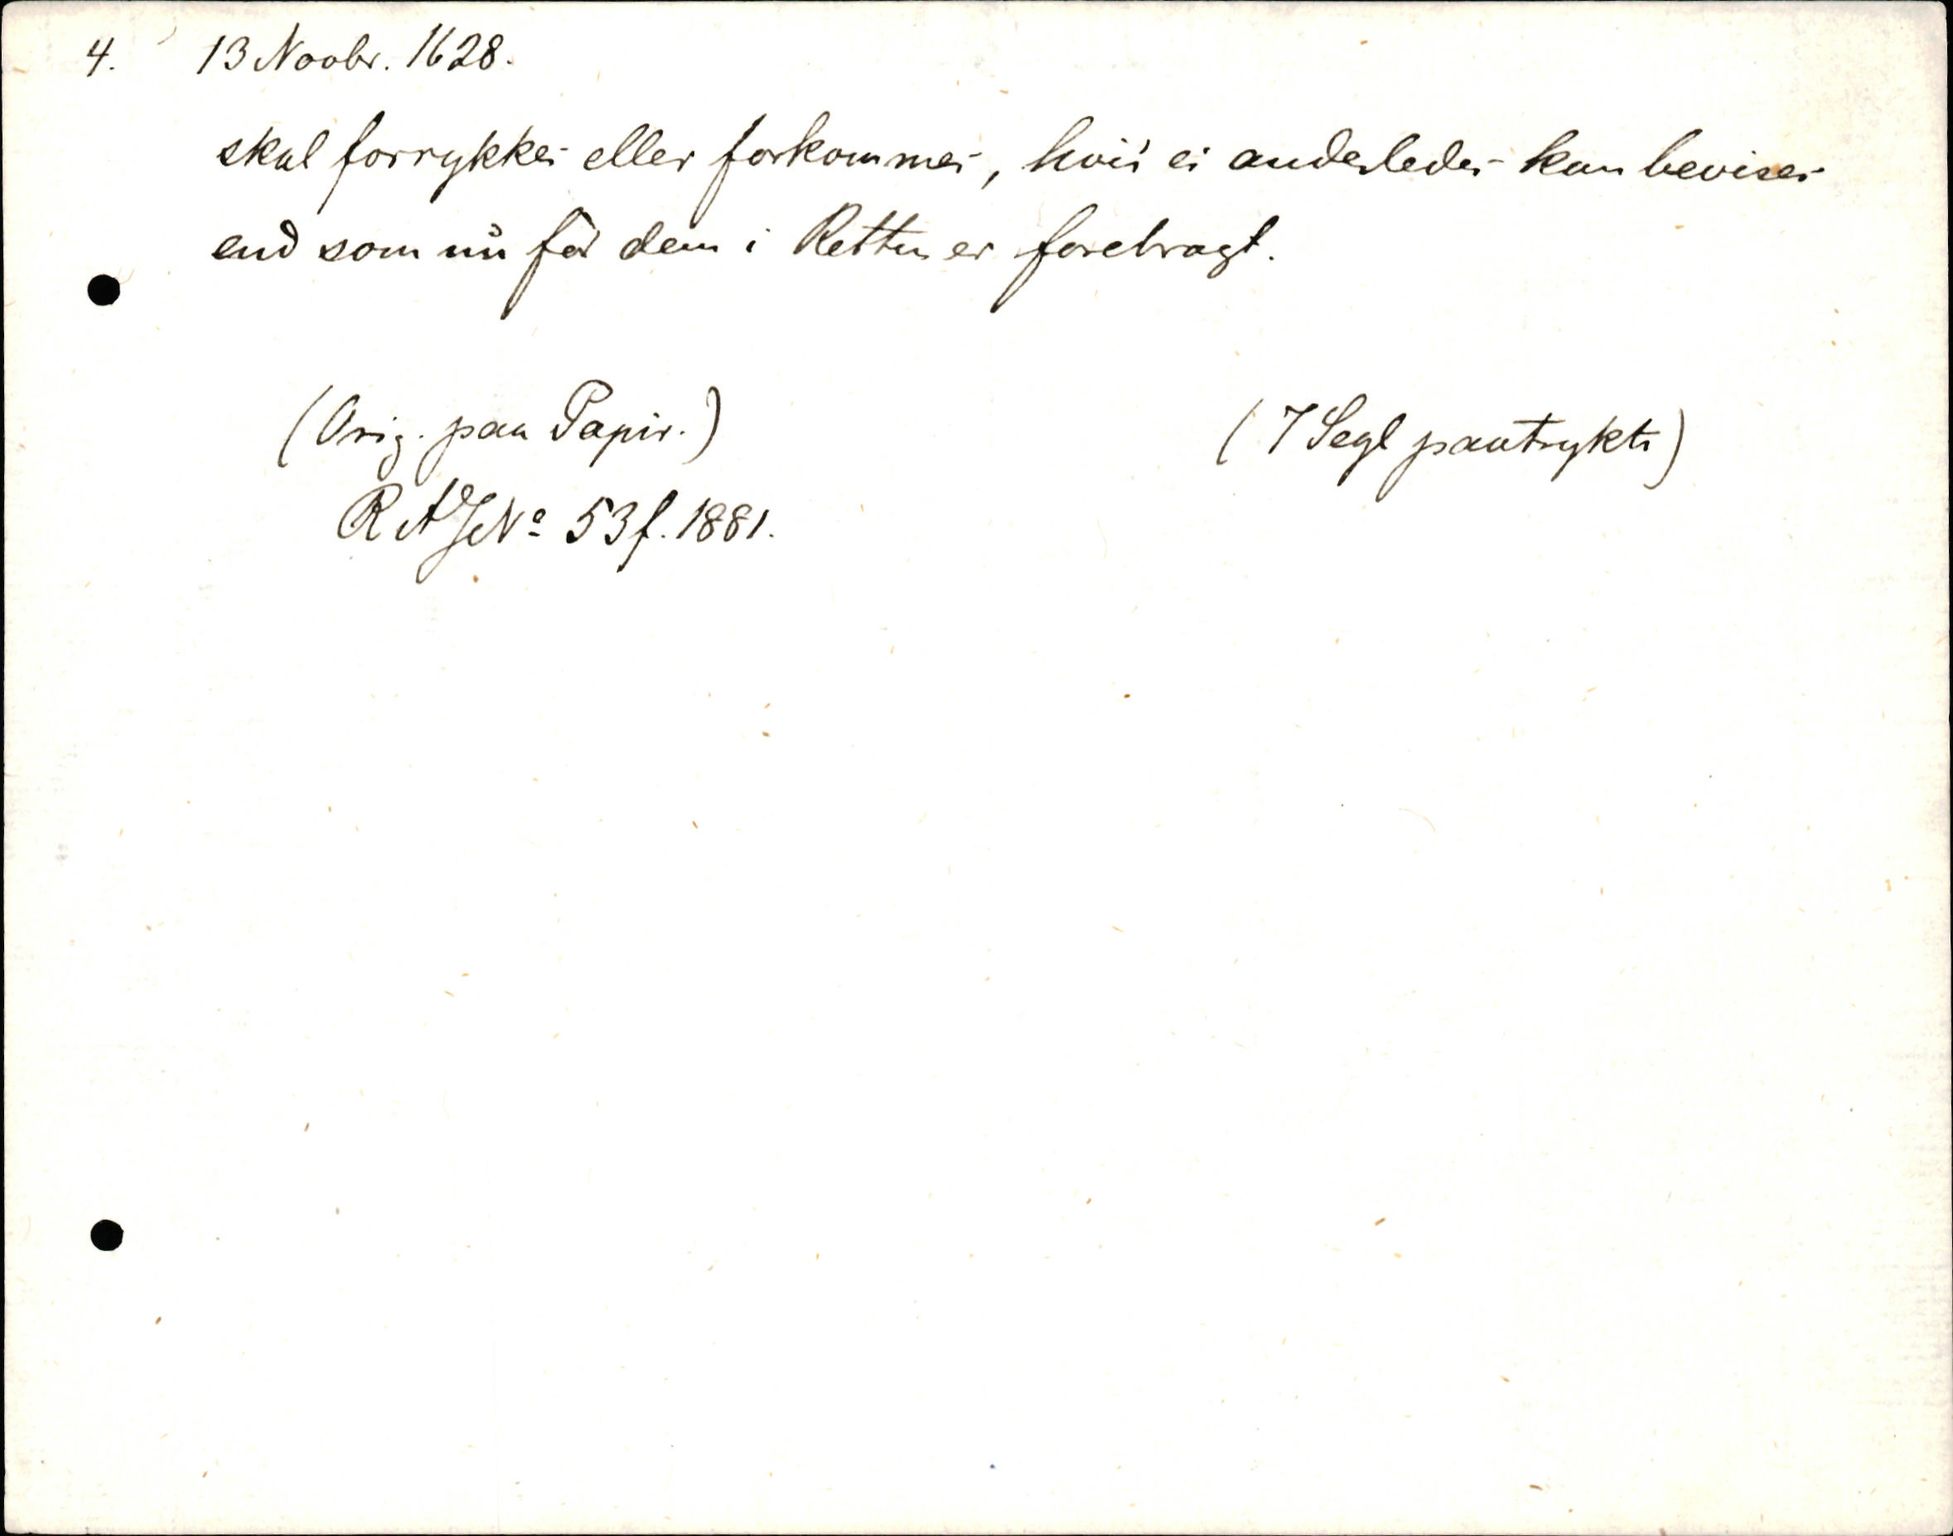 4. 13 Novbr. 1628.
skal forrykkes eller forkommes, hvis ei anderledes kan bevises
end som nu för dem i Retten er forebragt.
(Orig. paa Papir.) (7 Segl paatrykte)
RA J No 53 f. 1881.